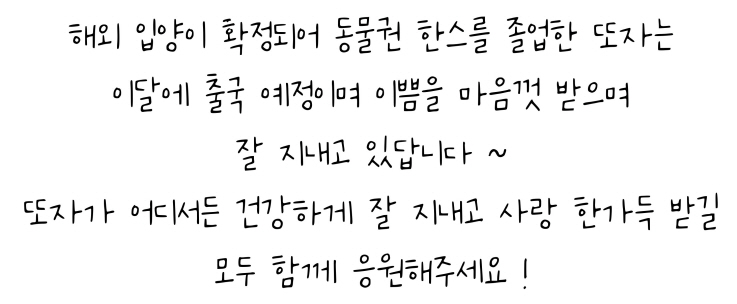 해외 입양이 확정되어 동물권 한스를 졸업한 또자는
이달에 출국 예정이며 이쁨을 마음껏 받으며
잘 지내고 있답니다 ~
또자가 어디서든 건강하게 잘 지내고 사랑 한가득 받길
모두 함께 응원해주세요 !